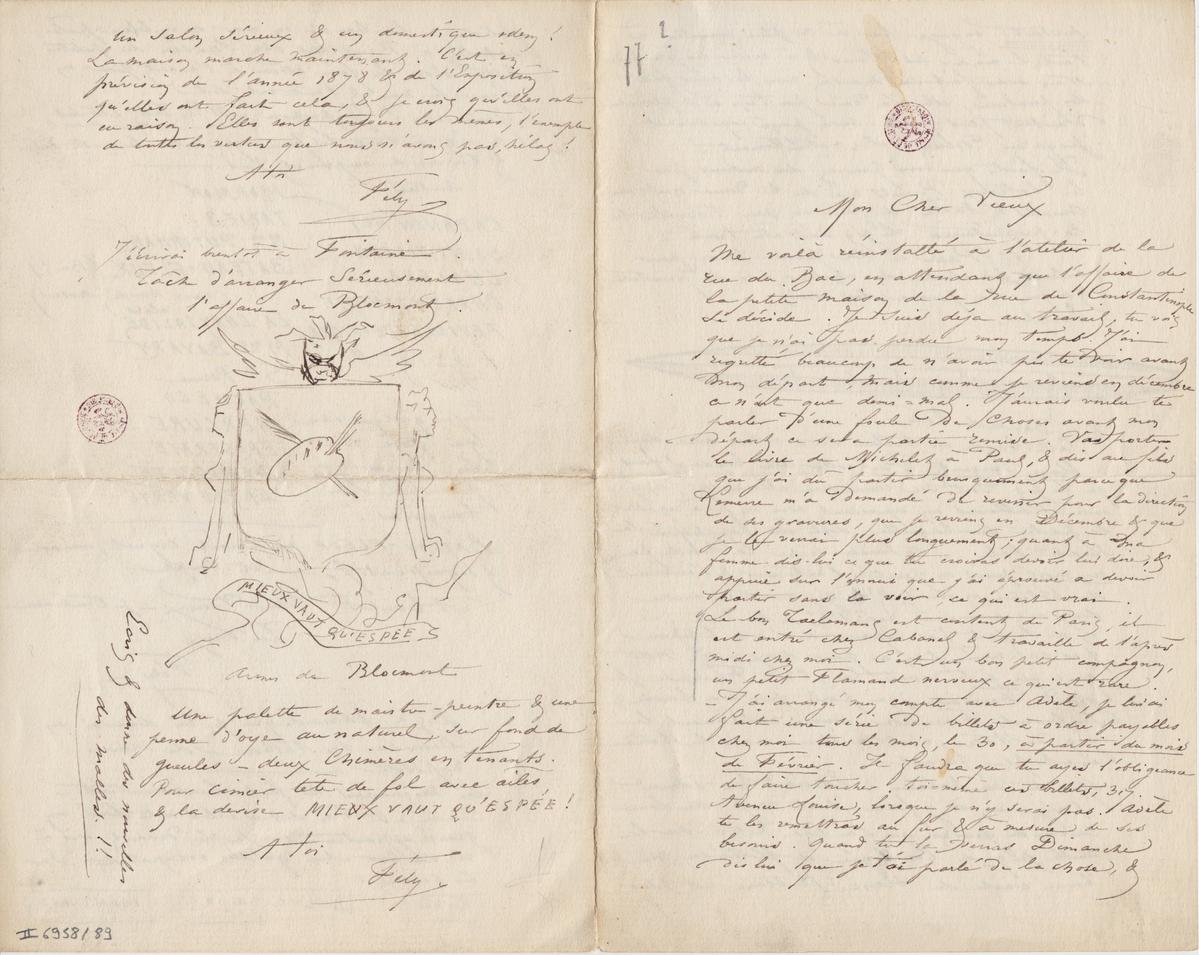 Mon Cher Vieux
Me voilà réinstallé à l'atelier de la
rue du Bac, en attendant que l'affaire de
la petite maison de la rue de Constantinople
se décide. Je suis déja au travail, tu vois
que je n'ai pas perdu mon temps. J'ai
regretté beaucoup de n'avoir pas te voir avant
mon départ, mais comme je reviens en décembre
ce n'est que demi-mal. J'aurais voulu te
parler d'une foule de choses avant mon
départ ce sera partie remise. Vas porter
le livre de Michelet à Paul, & dis au fils
que j'ai du partir brusquement parceque
Lemerre m'a demandé de revenir pour la direction
de ses gravures, que je reviens en Décembre & que
je le verrai plus longuement; quant à ma
femme dis-lui ce que tu croiras devoir lui dire, &
appuie sur l'ennui que j'ai éprouvé a devoir
partir sans la voir, ce qui est vrai.
Le bon Taelemans est content de Paris, il
est entré chez Cabanel & travaille de l'après
midi chez moi. C'est un bon petit compagnon,
un petit Flamand nerveux ce qui est rare.
– J'ai arrangé mon compte avec Adèle, je lui ai
fait une série de billets à ordre payables
chez moi tous les mois, le 30, à partir du mois
de Février. Il faudra que tu ayes l'obligeance
de faire toucher toi même ces billets, 37,
Avenue Louise, lorsque je n'y serai pas. Adèle
te les remettras au fur & à mesure de ses
besoins. Quand tu la verras Dimanche
dis lui que je t'ai parlé de la chose, &
un salon sérieux & un domestique idem!
La maison marche maintenant. C'est en
prévision de l'année 1878 & de l'Exposition
qu'elles ont fait cela, & je crois qu'elles ont
eu raison. Elles sont toujours les mêmes, l'exemple
de toutes les vertus que nous n'avons pas, hélas!
A toi
Fély
J'écrirai bientot à Fontaine.
Tâche d'arranger Sérieusement
l'affaire de Blocmont.
MIEUX VAUT
QU'ESPÉE
armes de Blocmont
Une palette de maistre-peintre & une
penne d'oye au naturel, sur fond de
gueules – deux Chimères en tenants.
Pour cimier tete de fol avec ailes,
& la devise MIEUX VAUT QU'ESPÉE!
A toi
Fély
Ecris & donne des nouvelles
des malles!!
77
2
II 6958/89